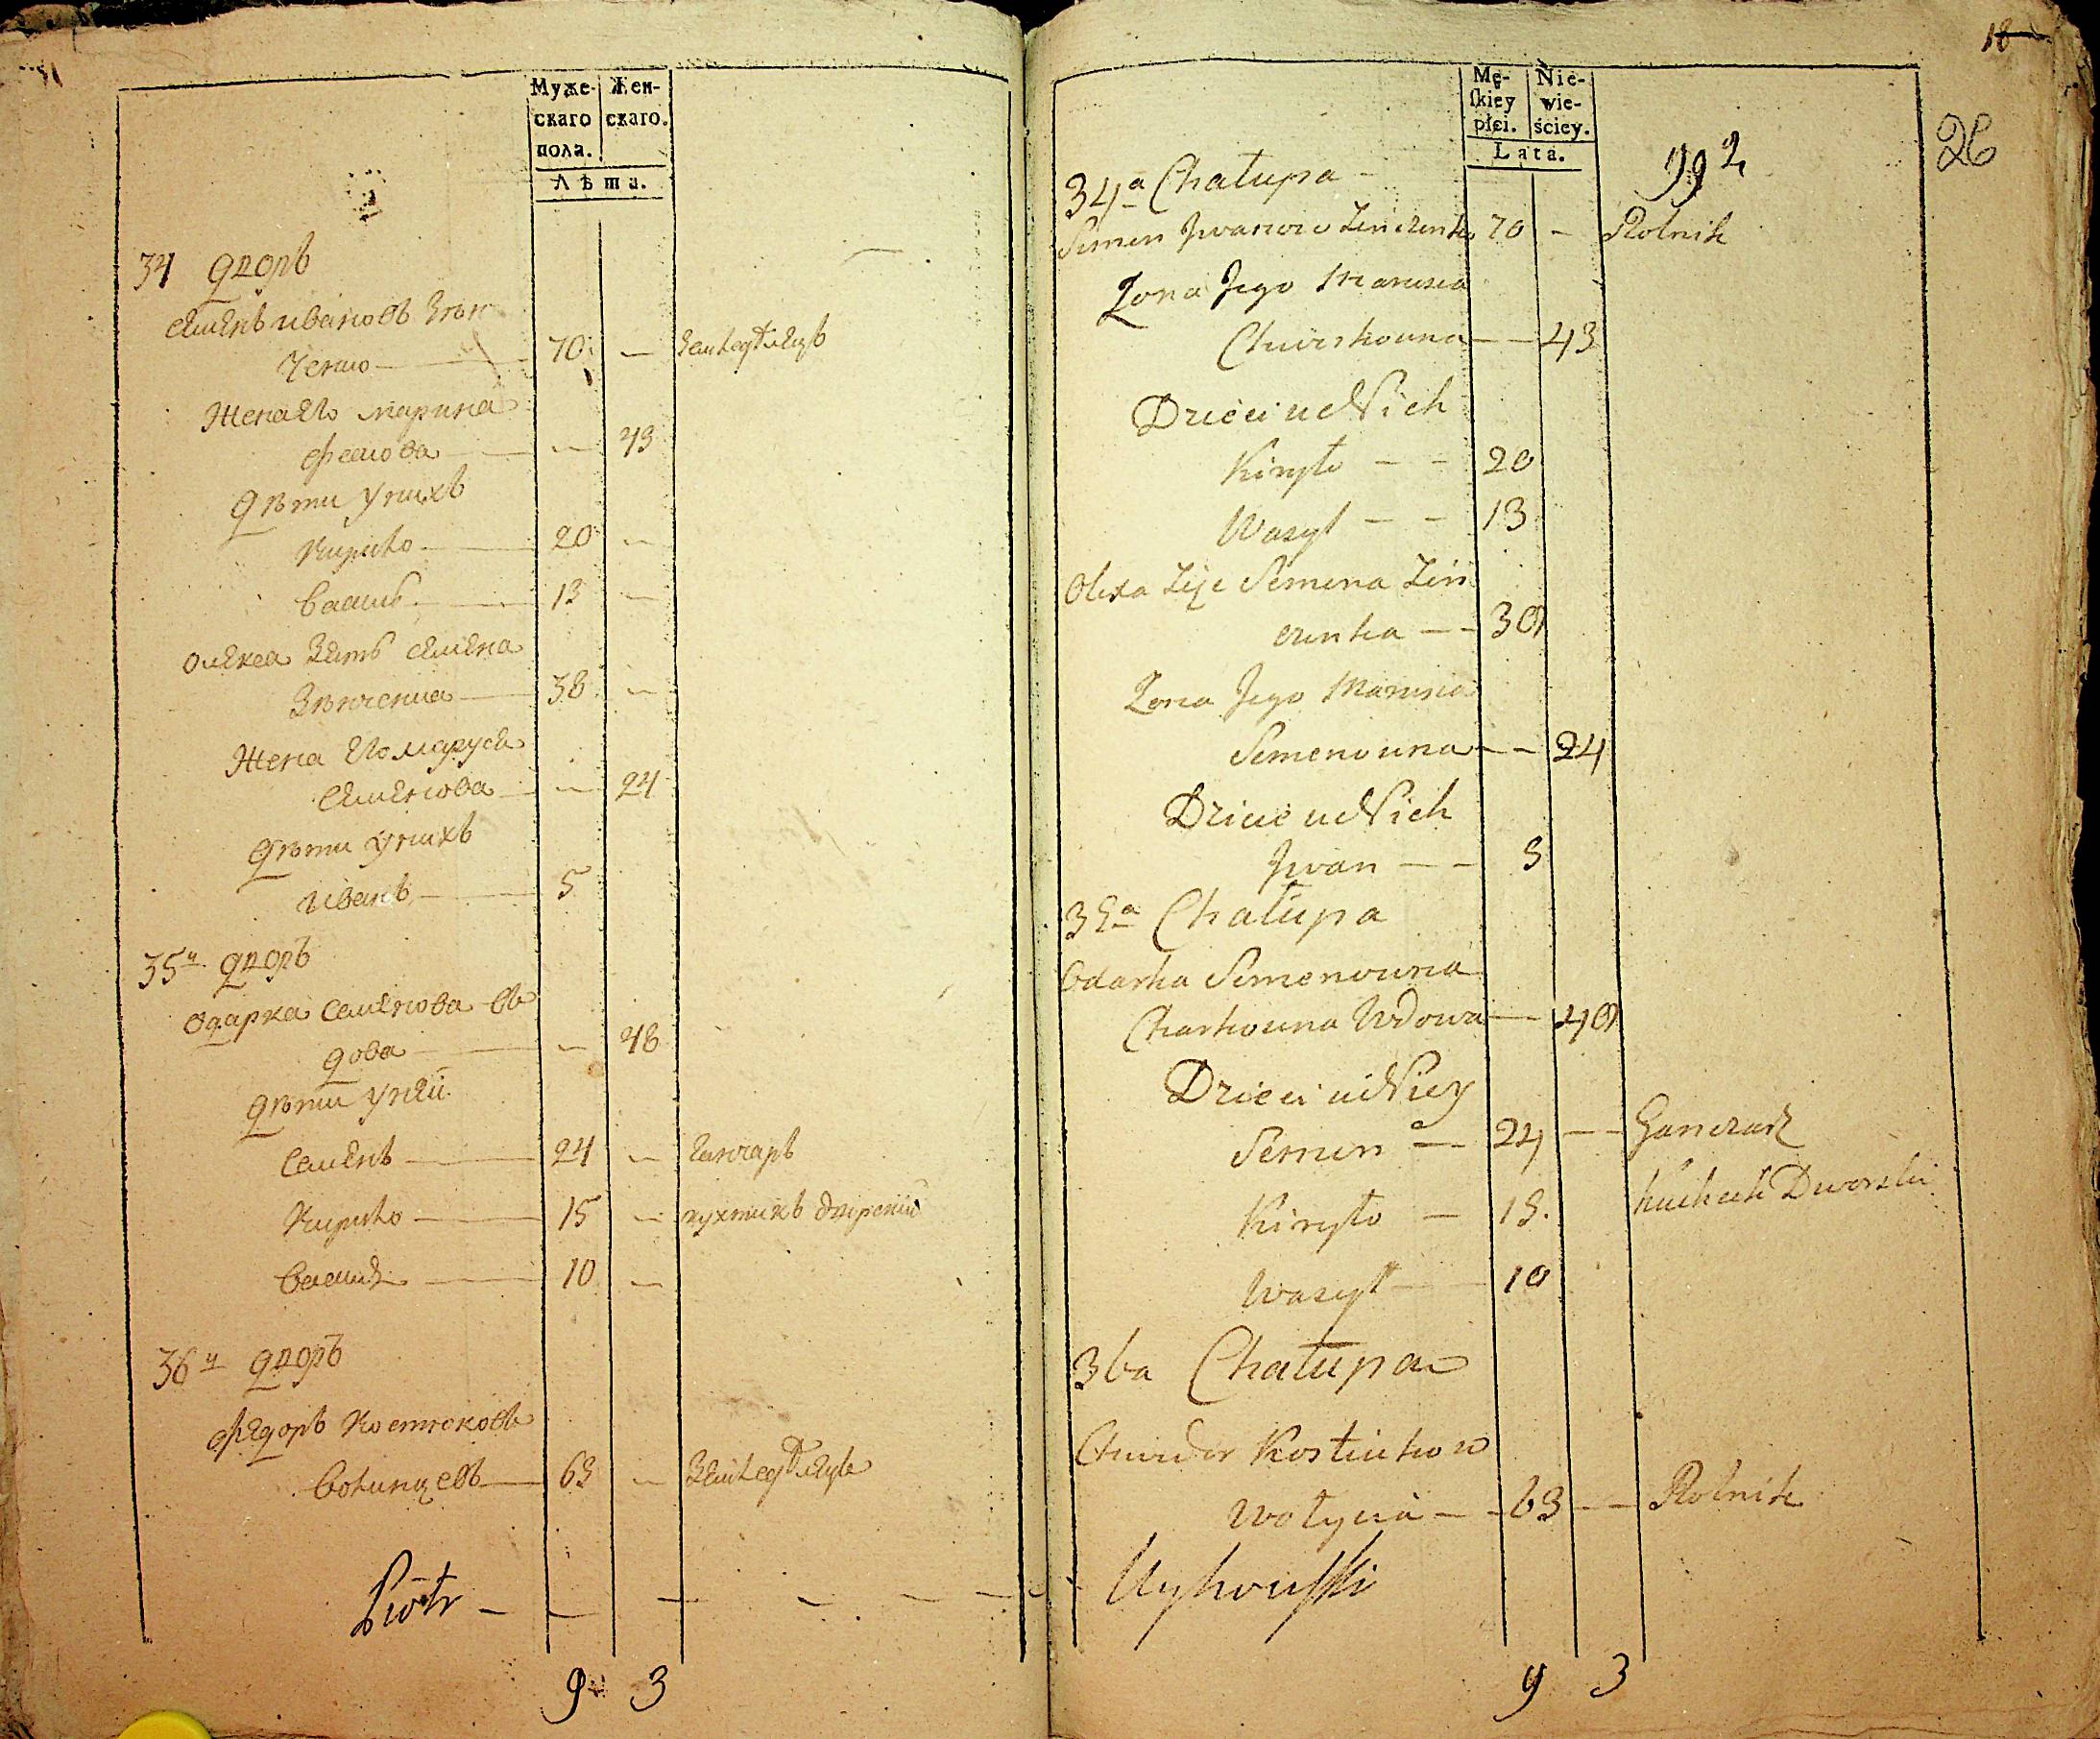 Муже-
скаго
пола.
Жен-
скаго.
Лѣта.
34 дворъ
Семенъ Ивановъ Зѣн
ченко — 70 — Земледѣлецъ
Жена Его Марина
— — 43
Дѣти у нихъ
Кирило — 20 —
Василь — 13 —
Олекса Зять Семена
Зѣнченка — 38 —
Жена Его Маруся
Семенова — — 24
Дѣти у нихъ
Иванъ — 5
35й дворъ
Одарка Семенова в
дова — — 48
Дѣти у ней
Семенъ — 24 — Ганчаръ
Кирило — 15 — кухтикъ дворский
Василь — 10 —
36й дворъ
Федоръ Костюковъ
— 63 — Земледѣлецъ
Piotr — — — — — —
9 3
18
26
Mę-
ſkiey
płci.
Nie-
wie-
ściey.
Lata.
34a Chałupa
Semen Jwanow Zinczenko 70 — Rolnik
Żona Jego Marusia
— — 43
Dzieci u Nich
Kiryło — — 20
Wasyl — — 13
Olexa Zięć Semena Zin
czenka — — 38
Żona Jego Marusia
Semenowna — — 24
Dzieci u Nich
Jwan — — 5
35a Chałupa
Odarka Semenowna
Charkowna Wdowa — 48
Dzieci u Niey
Semen — 24 — Ganczarz
Kiryło — 15. Kuchcik Dworski
Wasyl — 10
36a Chałupa
Chwedor Kostiukow
— — 63 — Rolnik
9 3